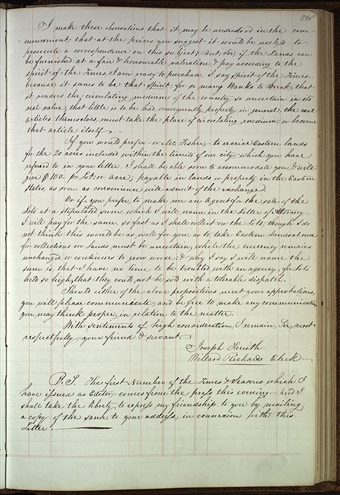 I make these observations that it may be understood in the com-
mencement, that at the prices you suggest it would be useless to
prosecute a correspondence on this subject; but, Sir, if the Lands can
be furnished at a fair & honourable valuation & pay according to the
spirit of the times, I am ready to purchase. I say Spirit of the Times,
because it seems to be that Spirit for so many Banks to Break that
it renders the circulating medium of the country, so uncertain in its
real value, that little is to be had, consequently, property, in general, the real
articles themselves must take the place of circulating medium or become
that article itself.
If you would prefer or Mr. Fisher to receive Eastern Lands
for the 20 acres included within the limits of our city, which you have
refer'd to in your letter, I should be able soon to accommodate you, & will
give $100. pr. Lot, or acre, payable in lands or property in the Eastern
States as soon as convenience will admit of the exchange.
Or if you prefer to make me an Agent for the sale of the
Lots at a stipulated sum, which I will name, in the letter of Attorney
I will pay for the same, so fast as I shall collect on the lots, though I do
not think this would be as well for you as to take Eastern lands at once
for collections on lands must be uncertain, while the currency remains
unchanged or continues to grow worse; & why I say I will name the
sum is, that I have no time to be troubled with an agency, for lots
held so high, that they could not be sold with tolerable dispatch.
Should either of the above propositions meet your approbation,
you will please communicate, and be free to make any communication
you may think proper, in relation to the matter.
With sentiments of high consideration, I remain, Sir, most
respectfully your friend & servant.
Joseph Smith
Willard Richards Clerk
P.S. The first Number of the Times & Seasons which I
have issued as Editor, comes from the press this evening and I
shall take the liberty to express my friendship to you by mailing
a copy of the same to your address, in connexion with this
Letter.